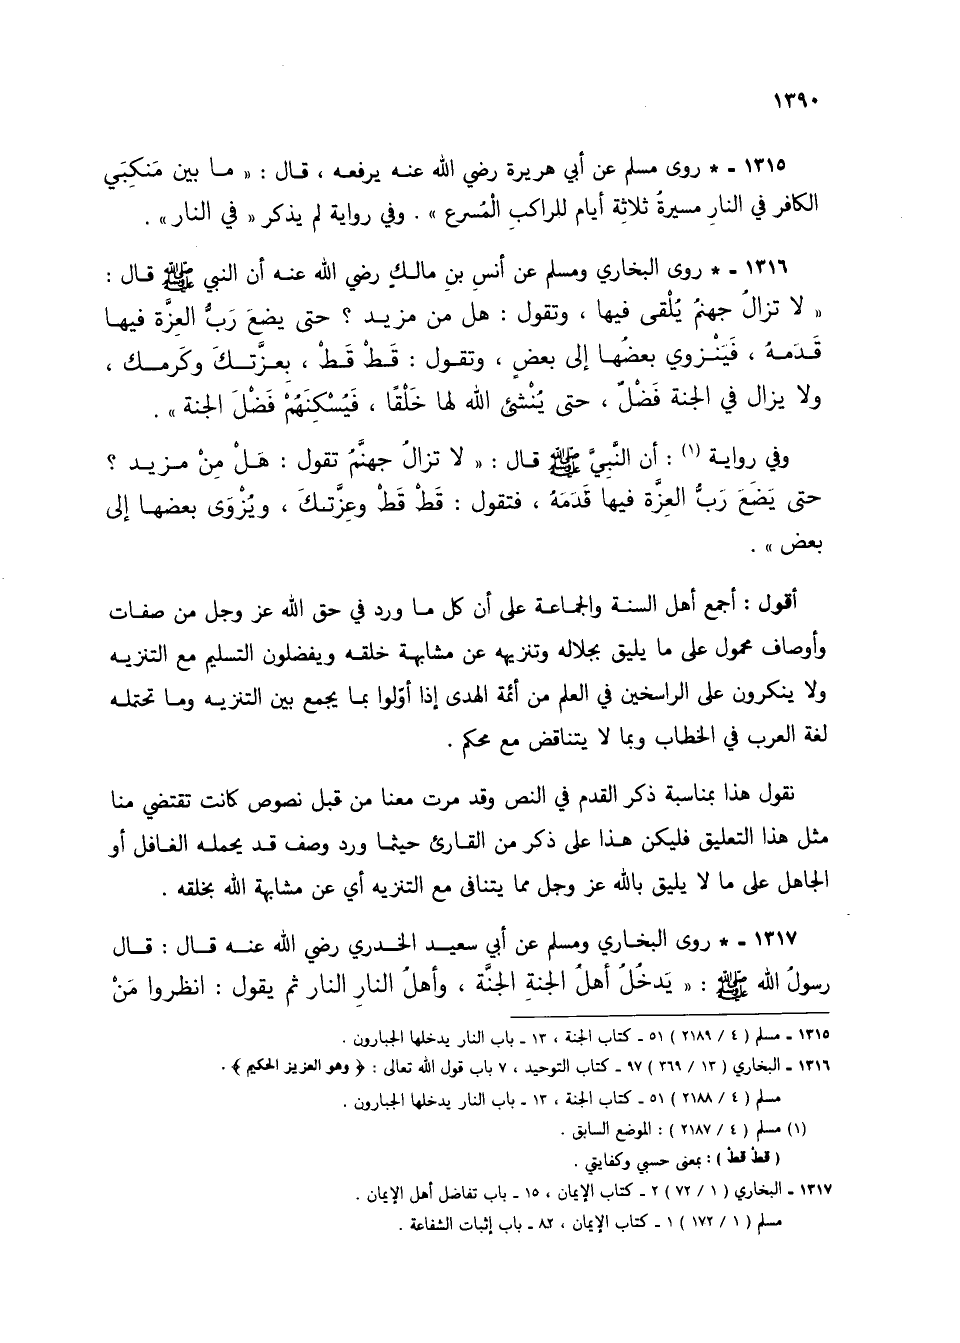 ١٣٩٠
١٣١٥ - * روى مسلم عن أبي هريرة رضي الله عنه يرفعه ، قال : « ما بين مَنكِبَي
الكافر في النارِ مسيرةُ ثلاثةِ أيام للراكبِ الْمُسرع » . وفي رواية لم يذكر « في النار» .
١٣١٦ - * روى البخاري ومسلم عن أنس بنِ مالكٍ رضي الله عنه أن النبي ﷺ قال :
« لا تزالُ جهنمُ يُلْقى فيها ، وتقول : هل من مزيد ؟ حتى يضعَ رَبُّ العِزَّة فيها
قَدَمهُ ، فَيَنْزوي بعضُها إلى بعضٍ ، وتقول : قَطْ قَطْ ، بعِزَّتكَ وكَرمك ،
ولا يزال في الجنة فَضْلٌ ، حتى يُنْشئَ الله لها خَلْقًا ، فَيُسْكِنَهُمْ فَضْلَ الجنة » .
وفي رواية (١) : أن النَّبيَّ ﷺ قال : « لا تزالُ جهنَّمُ تقول : هَلْ مِنْ مزيد ؟
حتى يَضَعَ رَبُّ العزَّة فيها قَدَمَهُ ، فتقول : قَطْ قَطْ وعِزَّتكَ ، ويُزْوَى بعضها إلى
بعض » .
أقول : أجمع أهل السنة والجماعة على أن كل ما ورد في حق الله عز وجل من صفات
وأوصاف محمول على ما يليق بجلاله وتنزيهه عن مشابهة خلقه ويفضلون التسليم مع التنزيه
ولا ينكرون على الراسخين في العلم من أئمة الهدى إذا أوّلوا بما يجمع بين التنزيه وما تحتمله
لغة العرب في الخطاب وبما لا يتناقض مع محكم .
نقول هذا بمناسبة ذكر القدم في النص وقد مرت معنا من قبل نصوص كانت تقتضي منا
مثل هذا التعليق فليكن هذا على ذكر من القارئ حيثما ورد وصف قد يحمله الغافل أو
الجاهل على ما لا يليق بالله عز وجل مما يتنافى مع التنزيه أي عن مشابهة الله بخلقه .
١٣١٧ - * روى البخاري ومسلم عن أبي سعيد الخدري رضي الله عنه قال : قال
رسولُ الله ﷺ : « يَدخُلُ أهلُ الجنةِ الجنَّة ، وأهلُ النارِ النار ثم يقول : انظروا مَنْ
١٣١٥ - مسلم ( ٤ / ٢١٨٩ ) ٥١ - كتاب الجنة ، ١٣ - باب النار يدخلها الجبارون .
١٣١٦ - البخاري ( ١٣ / ٣٦٩ ) ٩٧ - كتاب التوحيد ، ٧ باب قول الله تعالى : ﴿ وهو العزيز الحكيم ﴾ .
مسلم ( ٤ / ٢١٨٨ ) ٥١ - كتاب الجنة ، ١٣ - باب النار يدخلها الجبارون .
(١) مسلم ( ٤ / ٢١٨٧ ) : الموضع السابق .
( قطْ قطْ ) : بمعنى حسبي وكفايتي .
١٣١٧ - البخاري ( ١ / ٧٢ ) ٢ - كتاب الإيمان ، ١٥ - باب تفاضل أهل الإيمان .
مسلم ( ١ / ١٧٢ ) ١ - كتاب الإيمان ، ٨٢ - باب إثبات الشفاعة .